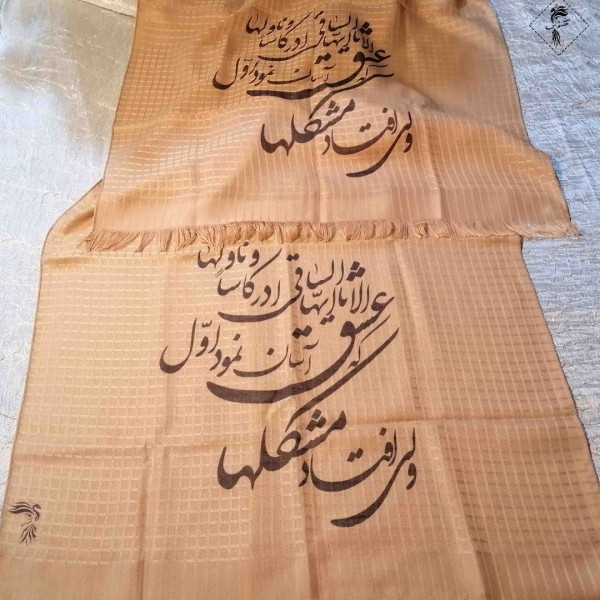 الا یا ایها الساقی ادر کاسا و ناولها
که عشق آسان نمود اوّل
ولی افتاد مشکلها
الا یا ایّها الساقی ادر کاساً و ناولها
که عشق آسان نمود اوّل
ولی افتاد مشکلها